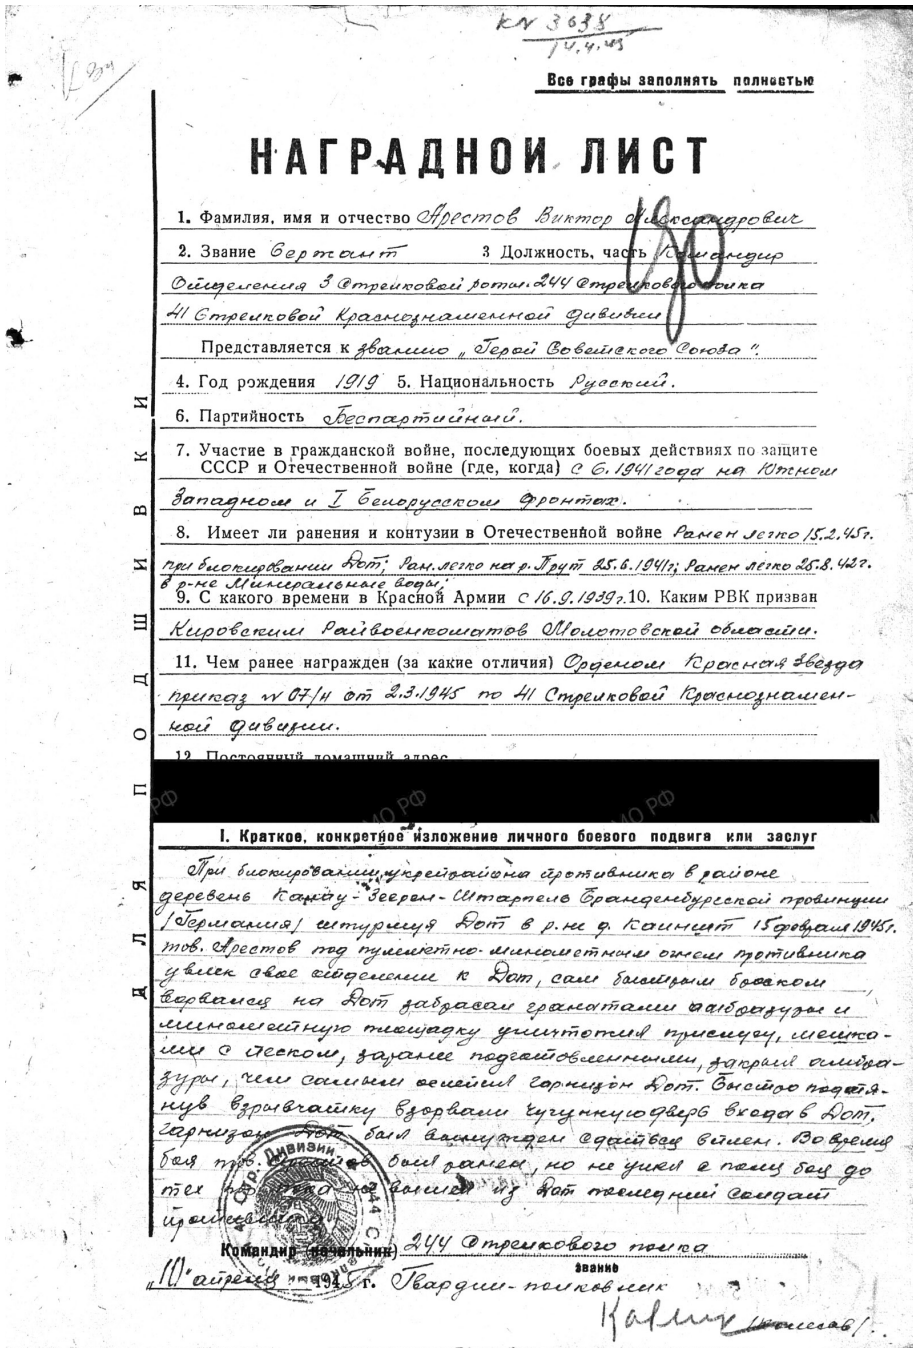 KN 3638
14.4.45
Все графы заполнять полностью
НАГРАДНОЙ ЛИСТ
1. Фамилия, имя и отчество Арестов Виктор Александрович
2. Звание Сержант 3 Должность, часть Командир
Отделения 3 Стрелковой роты 244 Стрелкового полка
41 Стрелковой Краснознаменной дивизии
Представляется к званию „Герой Советского Союза“.
4. Год рождения 1919 5. Национальность Русский.
6. Партийность Беспартийный.
7. Участие в гражданской войне, последующих боевых действиях по защите
СССР и Отечественной войне (где, когда) с 6.1941 года на Южном
Западном и I Белорусском фронтах.
8. Имеет ли ранения и контузии в Отечественной войне Ранен легко 15.2.45г.
при блокировании Дот; Ран. легко на р. Прут 25.6.1941г; Ранен легко 25.8.42г.
в р-не Минеральные воды;
9. С какого времени в Красной Армии с 16.9.1939г. 10. Каким РВК призван
Кировским Райвоенкоматов Молотовской области.
11. Чем ранее награжден (за какие отличия) Орденом Красная Звезда
приказ № 07/н от 2.3.1945 по 41 Стрелковой Краснознамен-
ной дивизии.
12. Постоянный домашний адрес
МО РФ
МО РФ
ДЛЯ ПОДШИВКИ
I. Краткое, конкретное изложение личного боевого подвига или заслуг
При блокировании укрепрайона противника в районе
деревень Канау-Зеерен-Штарпель Бранденбургсской провинции
/Германия/ штурмуя Дот в р.не д. Каиншт 15 февраля 1945г.
тов. Арестов под пулеметно-минометным огнем противника
увлек свое отделение к Дот, сам быстрым броском
ворвался на Дот забросал гранатами амбразуры и
минометную площадку уничтожил прислугу, мешка-
ми с песком, заранее подготовленными, закрыл амбра-
зуры, чем самым ослепил гарнизон Дот. Быстро подтя-
нув взрывчатку взорвали чугунную дверь входа в Дот.
гарнизон Дот был вынужден сдаться в плен. Во время
боя тов. Арестов был ранен, но не ушел с поля боя до
тех пор пока не вышел из Дот последний солдат
противника.
Командир (начальник) 244 Стрелкового полка
звание
„10“ апреля 1945 г. Гвардии-полковник